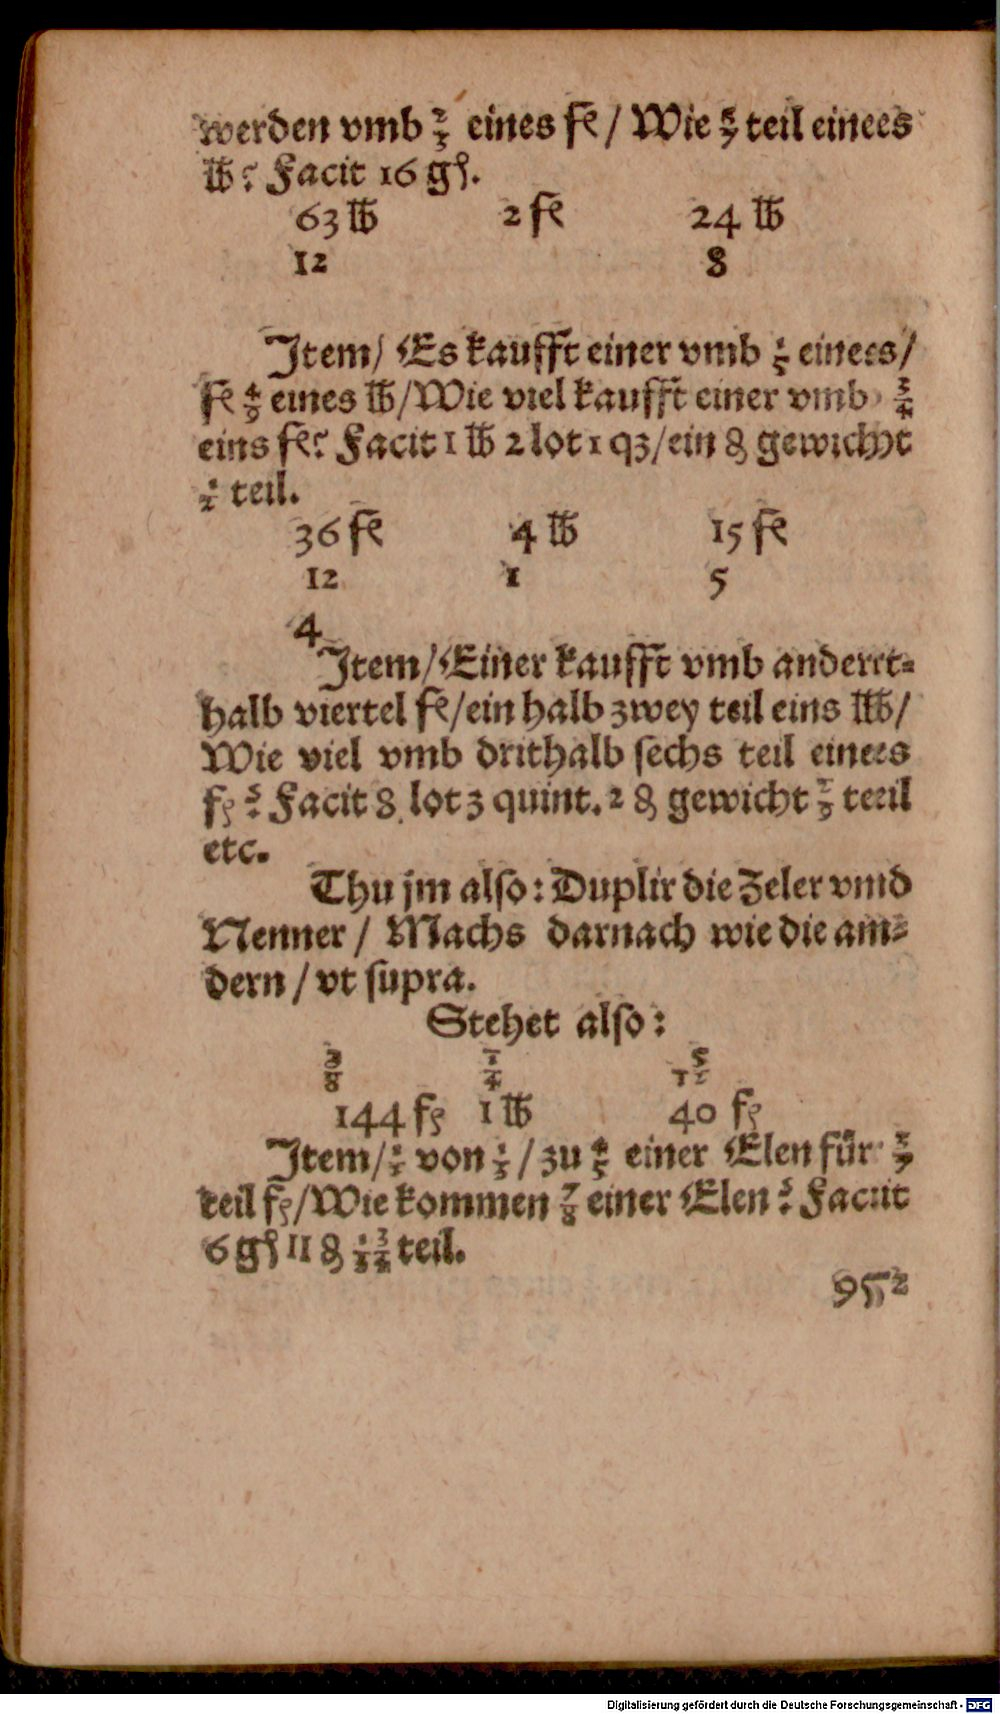 werden vmb ⅔ eines fl / Wie teil einees
℔? Facit 16 gß.
63 ℔ 2 fl 24 ℔
12 8
Item / Es kaufft einer vmb ⅕ einees /
fl 4/9 eines ℔ / Wie viel kaufft einer vmb ¾
eins fl? Facit 1 ℔ 2 lot 1 qz / ein ₰ gewichṫ
½ teil.
36 fl 4 ℔ 15 fl
12 1 5
4
Item / Einer kaufft vmb anderet=
halb viertel fl / ein halb zwey teil eins ℔ /
Wie viel vmb drithalb sechs teil einees
fl? Facit 8 lot 3 quint. 2 ₰ gewicht 2/9 teeil
etc.
Thu jm also: Duplir die Zeler vmd
Nenner / Machs darnach wie die am=
dern / vt supra.
Stehet also:
3/8 1/4 5/12
144 fl 1 ℔ 40 fl
Item / ½ von ⅓ / zu ⅘ einer Elen für
teil fl / Wie kommen ⅞ einer Elen? Faciit
6 gß 11 ₰ teil.
95²
Digitalisierung gefördert durch die Deutsche Forschungsgemeinschaft - DFG